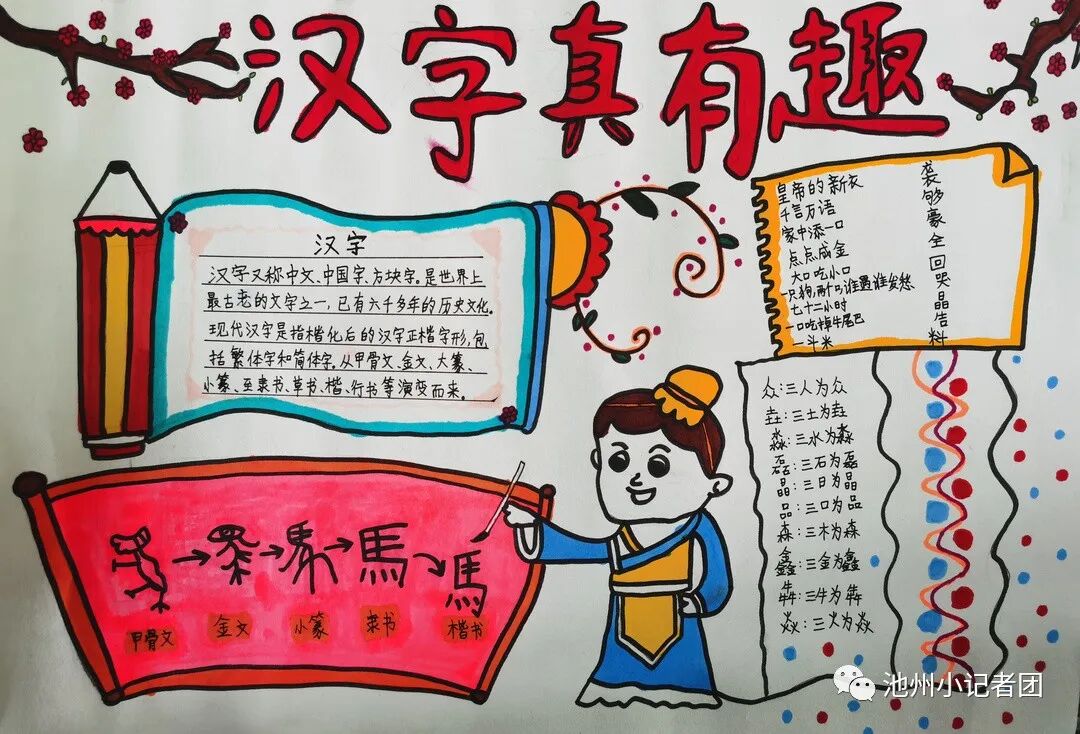 汉字真有趣
汉字
汉字又称中文、中国字、方块字。是世界上
最古老的文字之一，已有六千多年的历史文化。
现代汉字是指楷化后的汉字正楷字形，包
括繁体字和简体字。从甲骨文、金文、大篆、
小篆、至隶书、草书、楷、行书等演变而来。
皇帝的新衣 袭
千言万语 够
家中添一口 豪
点点成金 全
大口吃小口 回
一只狗，两个口，谁遇谁发愁 哭
七十二小时 晶
一口吃掉牛尾巴 告
一斗米 料
众：三人为众
垚：三土为垚
淼：三水为淼
磊：三石为磊
晶：三日为晶
品：三口为品
森：三木为森
鑫：三金为鑫
犇：三牛为犇
焱：三火为焱
馬 馬
甲骨文 金文 小篆 隶书 楷书
池州小记者团